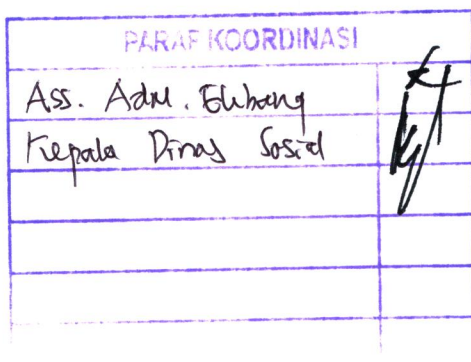 PARAF KOORDINASI
Ass. Adm. Ekbang
Kepala Dinas Sosial